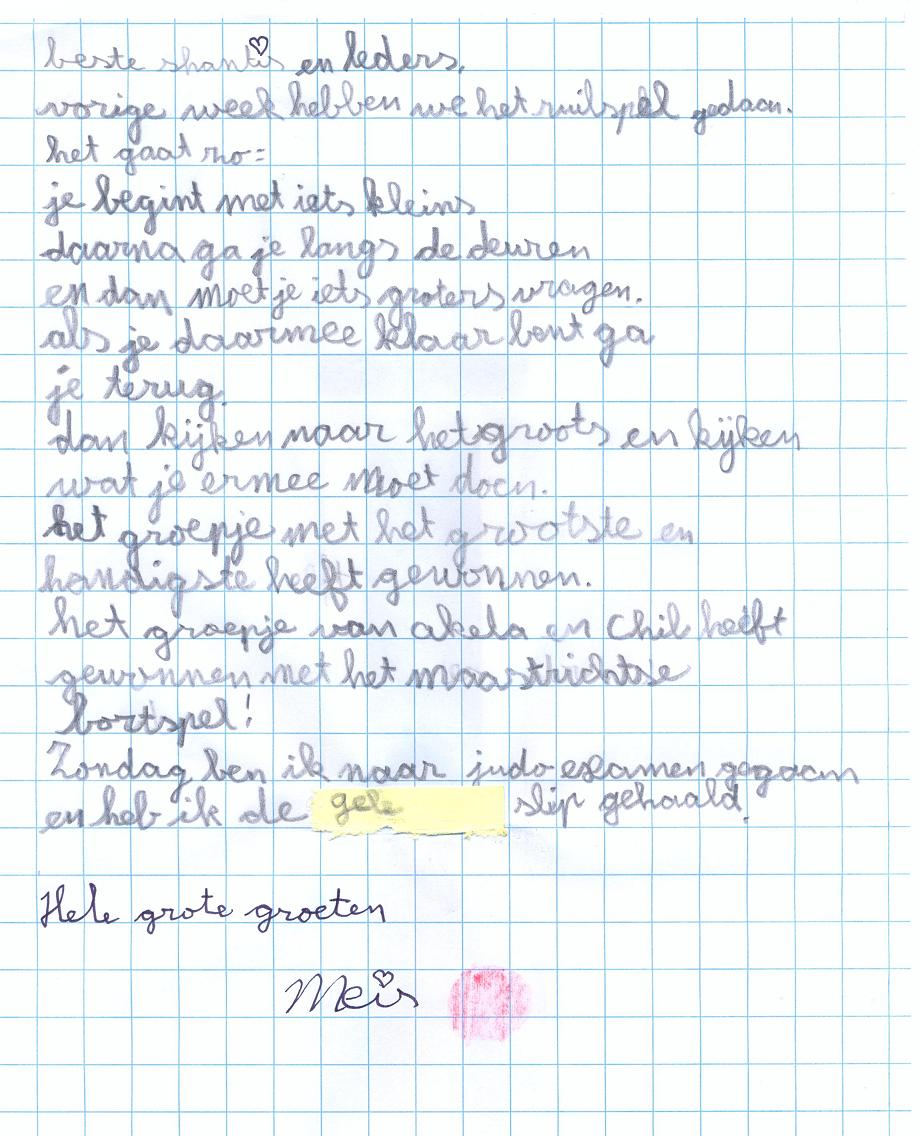 beste shantis en leders,
vorige week hebben we het ruilspel gedaan.
het gaat zo:
je begint met iets kleins
daarna ga je langs de deuren
en dan moet je iets groters vragen.
als je daarmee klaar bent ga
je terug.
dan kijken naar het groots en kijken
wat je ermee moet doen.
het groepje met het grootste en
handigste heeft gewonnen.
het groepje van akela en Chil heeft
gewonnen met het maastrichtse
bortspel!
Zondag ben ik naar judo examen gegaan
en heb ik de gele slip gehaald.
Hele grote groeten
Meis